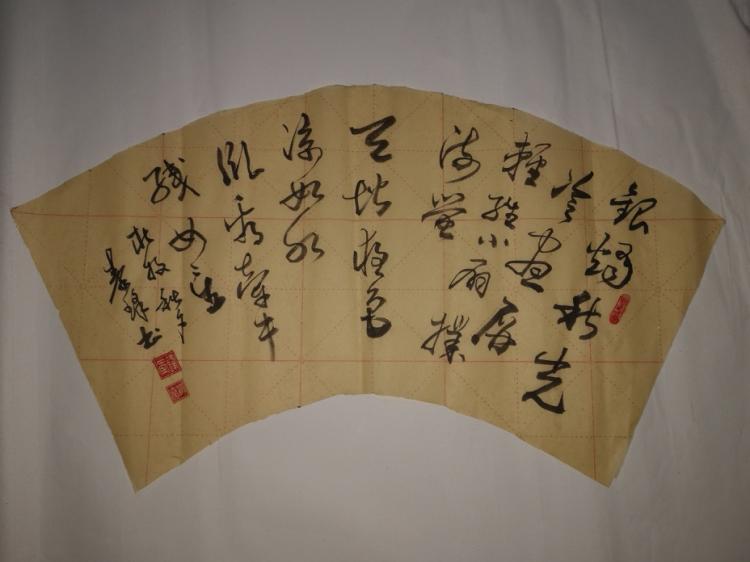 銀燭秋光
冷画屏
輕羅小扇撲
流螢
天階夜色
凉如水
臥看牽牛
織女星
杜牧秋夕
书